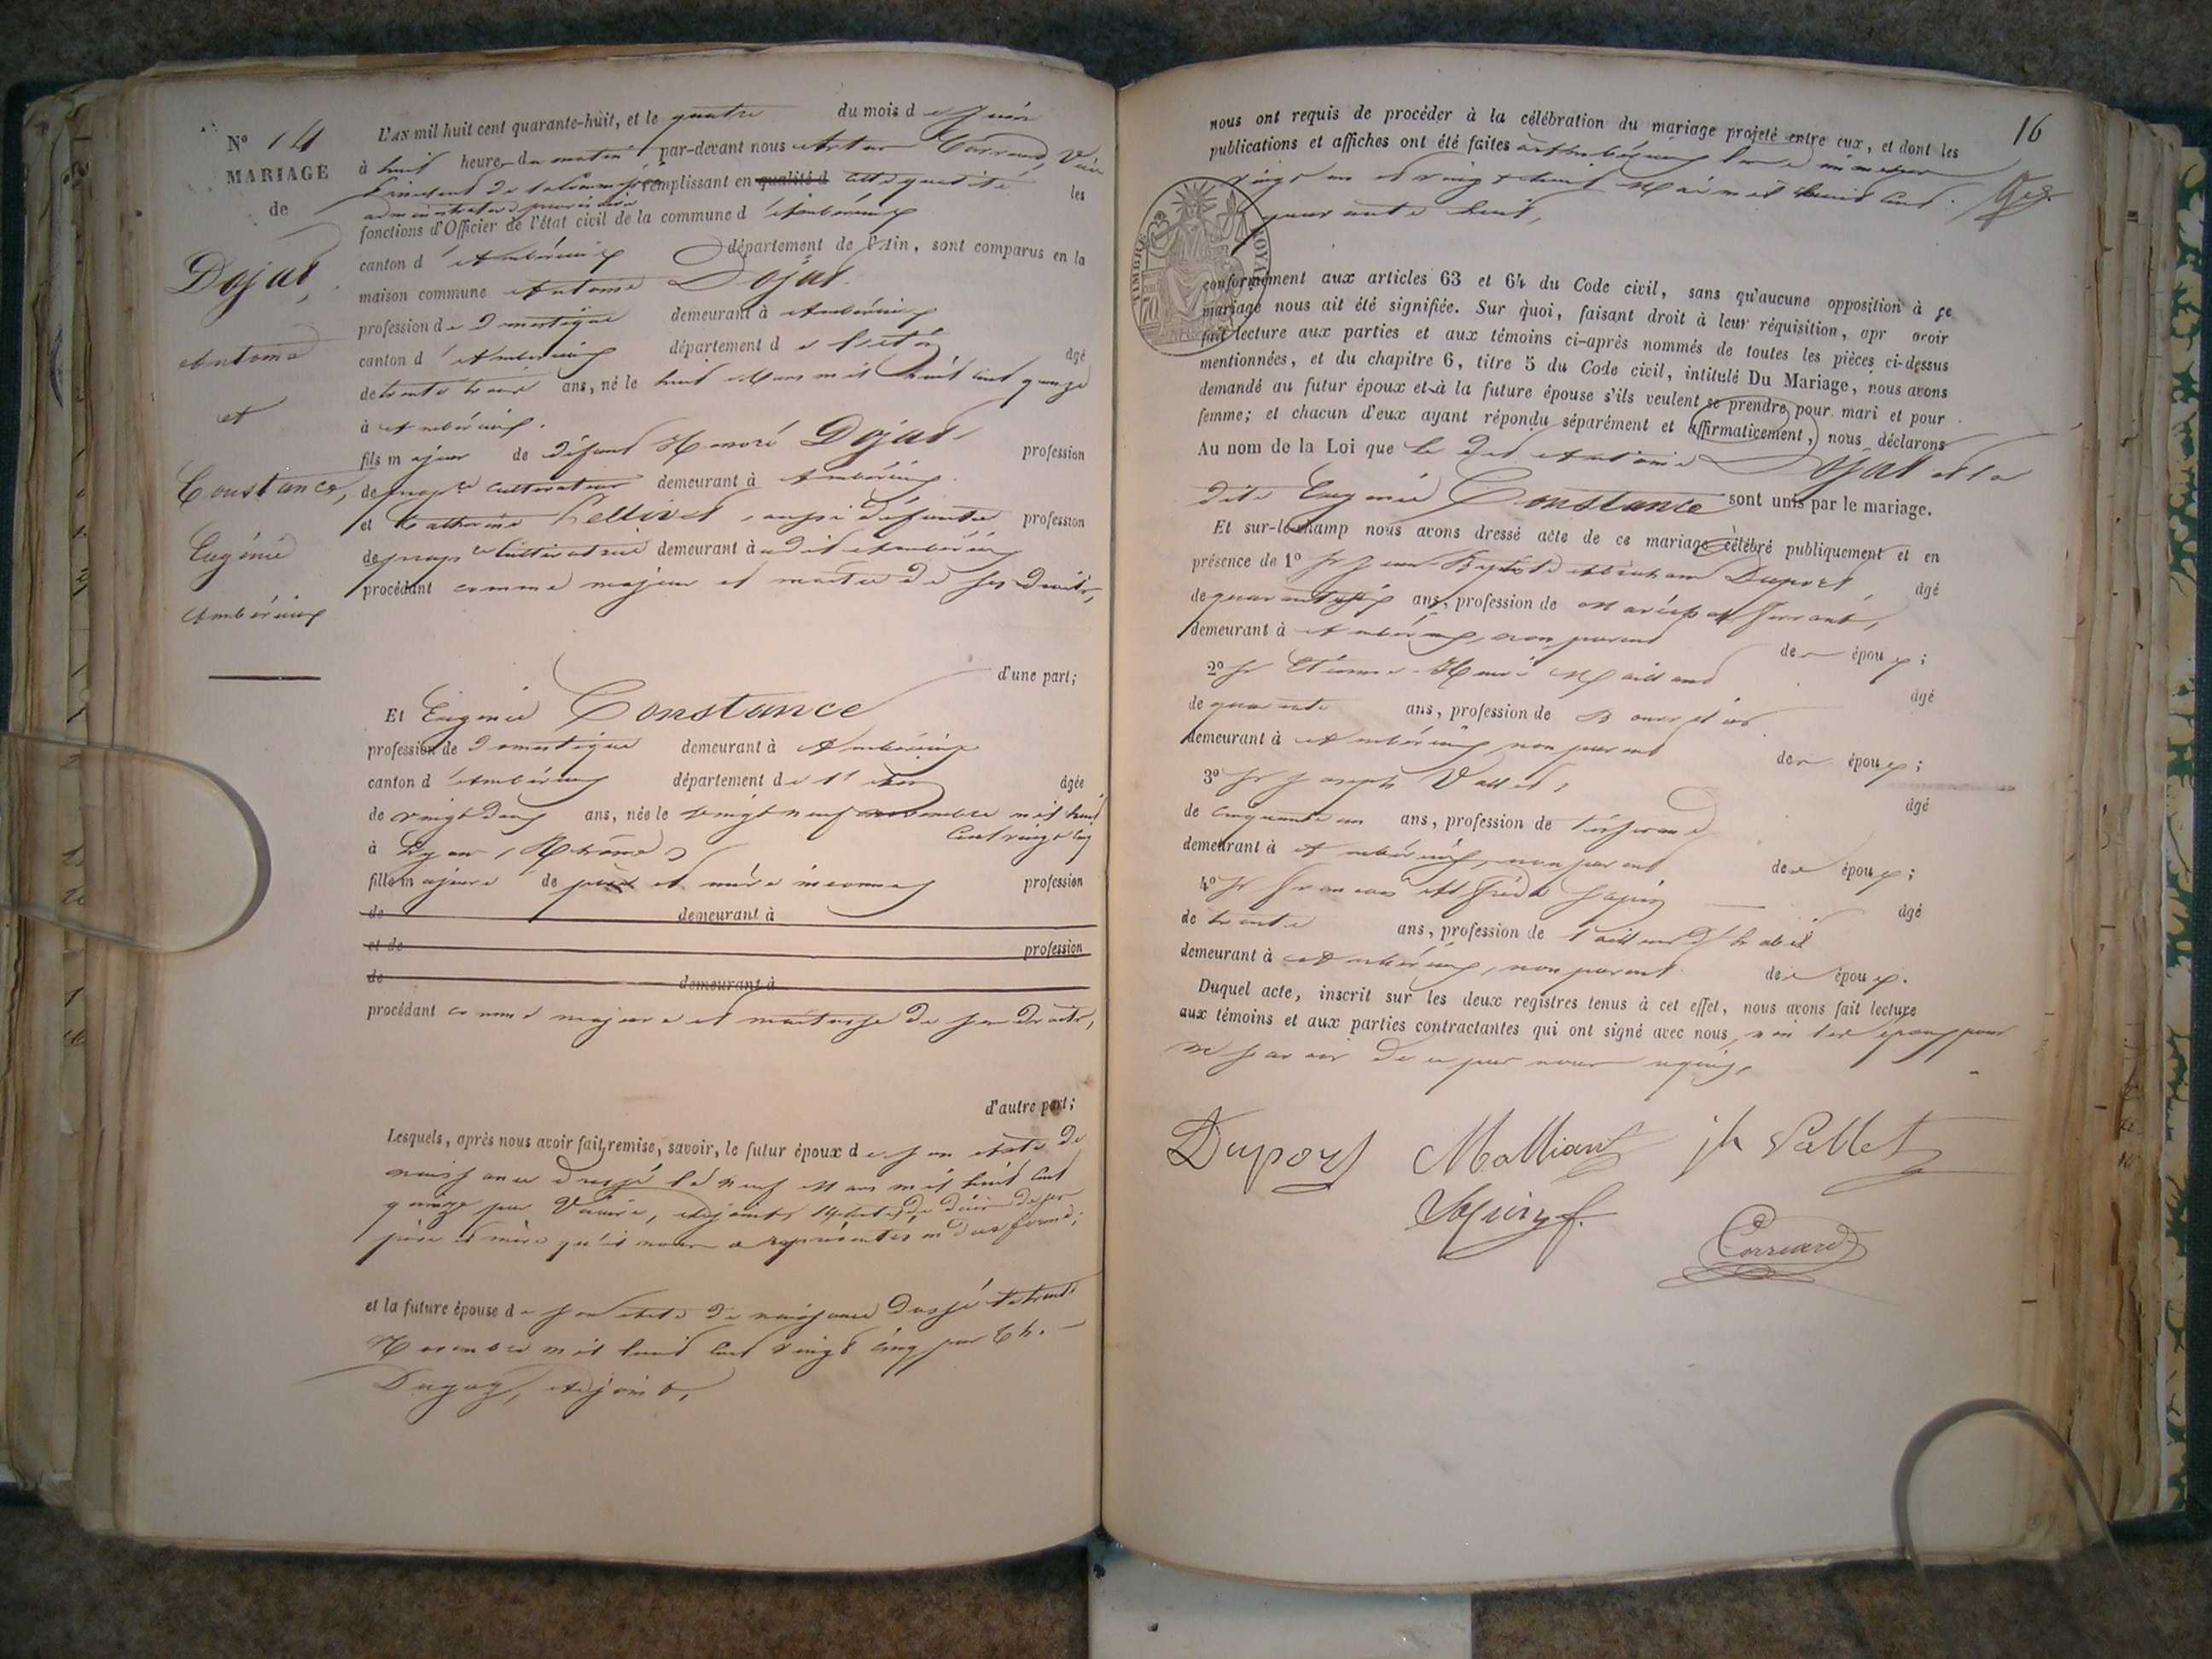 N° 14
MARIAGE
de
Dojat,
Antoine
et
Constance,
Eugénie
Ambérieux
L'AN mil huit cent quarante-huit, et le quatre du mois de Juin
à huit heures du matin par-devant nous
remplissant en qualité d les
fonctions d'Officier de l'état civil de la commune d'Ambérieux
canton d'Ambérieux département de l'Ain, sont comparus en la
maison commune Antoine Dojat
profession de Domestique demeurant à Ambérieux
canton d'Ambérieux département de l'Ain âgé
de trente trois ans, né le huit Mars mil huit cent quinze
à Ambérieux.
fils majeur de défunt Honoré Dojat profession
de cultivateur demeurant à Ambérieux.
et Catherine aussi défunte profession
de cultivatrice demeurant à
procédant comme majeur et maître de ses droits,
d'une part;
Et Eugénie Constance
profession de Domestique demeurant à Ambérieux
canton d'Ambérieux département de l'Ain âgée
de vingt deux ans, née le vingt neuf novembre mil huit
cent vingt cinq
à Lyon, (Rhône)
fille majeure de père et mère inconnus profession
de demeurant à
et de profession
de demeurant à
procédant comme majeure et maîtresse de ses droits,
d'autre part;
Lesquels, après nous avoir fait remise, savoir, le futur époux de son acte de
naissance dressé le neuf Mars mil huit cent
quinze par adjoint, de décès de ses
père et mère qu'il nous a représentés en due forme;
et la future épouse de son acte de naissance dressé le trente
Novembre mil huit cent vingt cinq par
adjoint,
16
nous ont requis de procéder à la célébration du mariage projeté entre eux, et dont les
publications et affiches ont été faites à Ambérieux
vingt un et vingt huit Mai mil huit cent
quarante huit,
TIMBRE ROYAL
conformément aux articles 63 et 64 du Code civil, sans qu'aucune opposition à ce
mariage nous ait été signifiée. Sur quoi, faisant droit à leur réquisition, apr avoir
fait lecture aux parties et aux témoins ci-après nommés de toutes les pièces ci-dessus
mentionnées, et du chapitre 6, titre 5 du Code civil, intitulé Du Mariage, nous avons
demandé au futur époux et à la future épouse s'ils veulent se prendre pour mari et pour
femme; et chacun d'eux ayant répondu séparément et affirmativement, nous déclarons
Au nom de la Loi que le dit Antoine Dojat et la
dite Eugénie Constance sont unis par le mariage.
Et sur-le-champ nous avons dressé acte de ce mariage célébré publiquement et en
présence de 1° Sr Jean Baptiste Abraham Duport âgé
de ans, profession de Maréchal ferrant,
demeurant à Ambérieux, non parent des époux;
2° Sr Etienne âgé
de quarante ans, profession de
demeurant à Ambérieux, non parent des époux;
3° Sr Joseph Vallet, âgé
de cinquante un ans, profession de
demeurant à Ambérieux, non parent des époux;
4° Sr François âgé
de trente ans, profession de tailleur d'habit
demeurant à Ambérieux, non parent des époux.
Duquel acte, inscrit sur les deux registres tenus à cet effet, nous avons fait lecture
aux témoins et aux parties contractantes qui ont signé avec nous, non les époux pour
ne savoir de ce par nous requis,
Duport jh Vallet